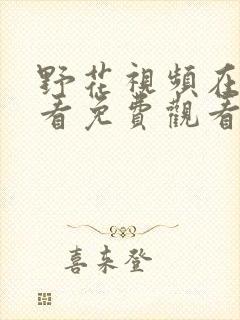 野花視頻在
看免費觀看
喜來登